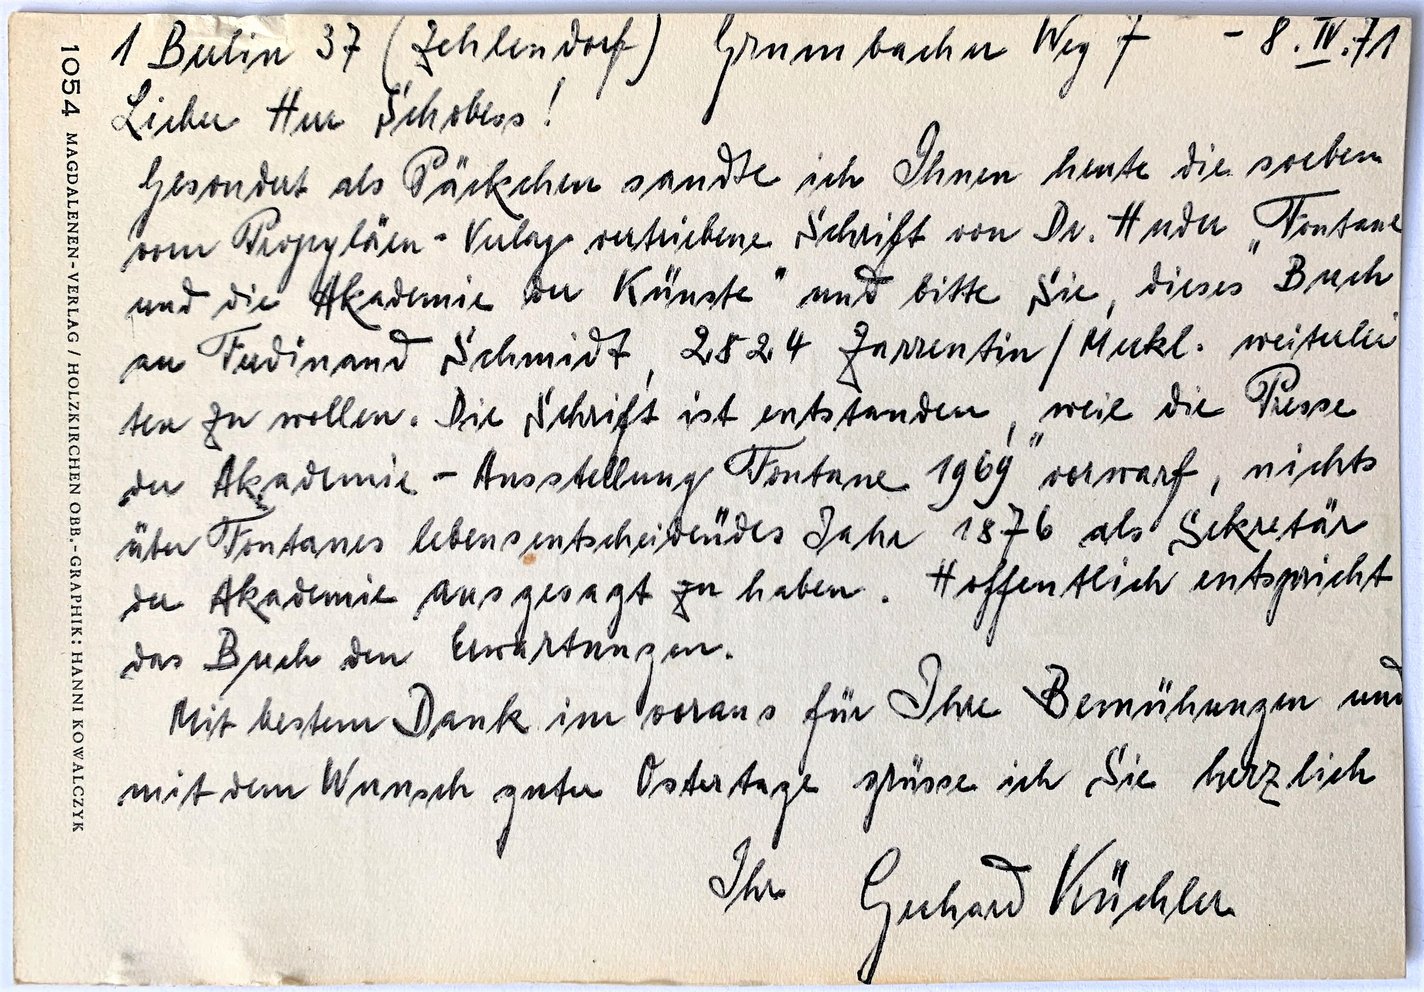 1 Berlin 37 (Zehlendorf) Grumbacher Weg 7 - 8. IV. 71
Lieber Herr Schobess!
Gesondert als Päckchen sandte ich Ihnen heute die soeben
vom Propyläen-Verlag vertriebene Schrift von Dr. Huder „Fontane
und die Akademie der Künste" und bitte Sie, dieses Buch
an Ferdinand Schmidt, 2824 Zarrentin/Meckl. weiterlei
ten zu wollen. Die Schrift ist entstanden, weil die Presse
der Akademie-Ausstellung Fontane 1969" vorwarf, nichts
über Fontanes lebensentscheidendes Jahr 1876 als Sekretär
der Akademie ausgesagt zu haben. Hoffentlich entspricht
das Buch den Erwartungen.
Mit bestem Dank im voraus für Ihre Bemühungen und
mit dem Wunsch guter Ostertage grüsse ich Sie herzlich
Ihr Gerhard Küchler
1054 MAGDALENEN-VERLAG / HOLZKIRCHEN OBB.-GRAPHIK: HANNI KOWALCZYK